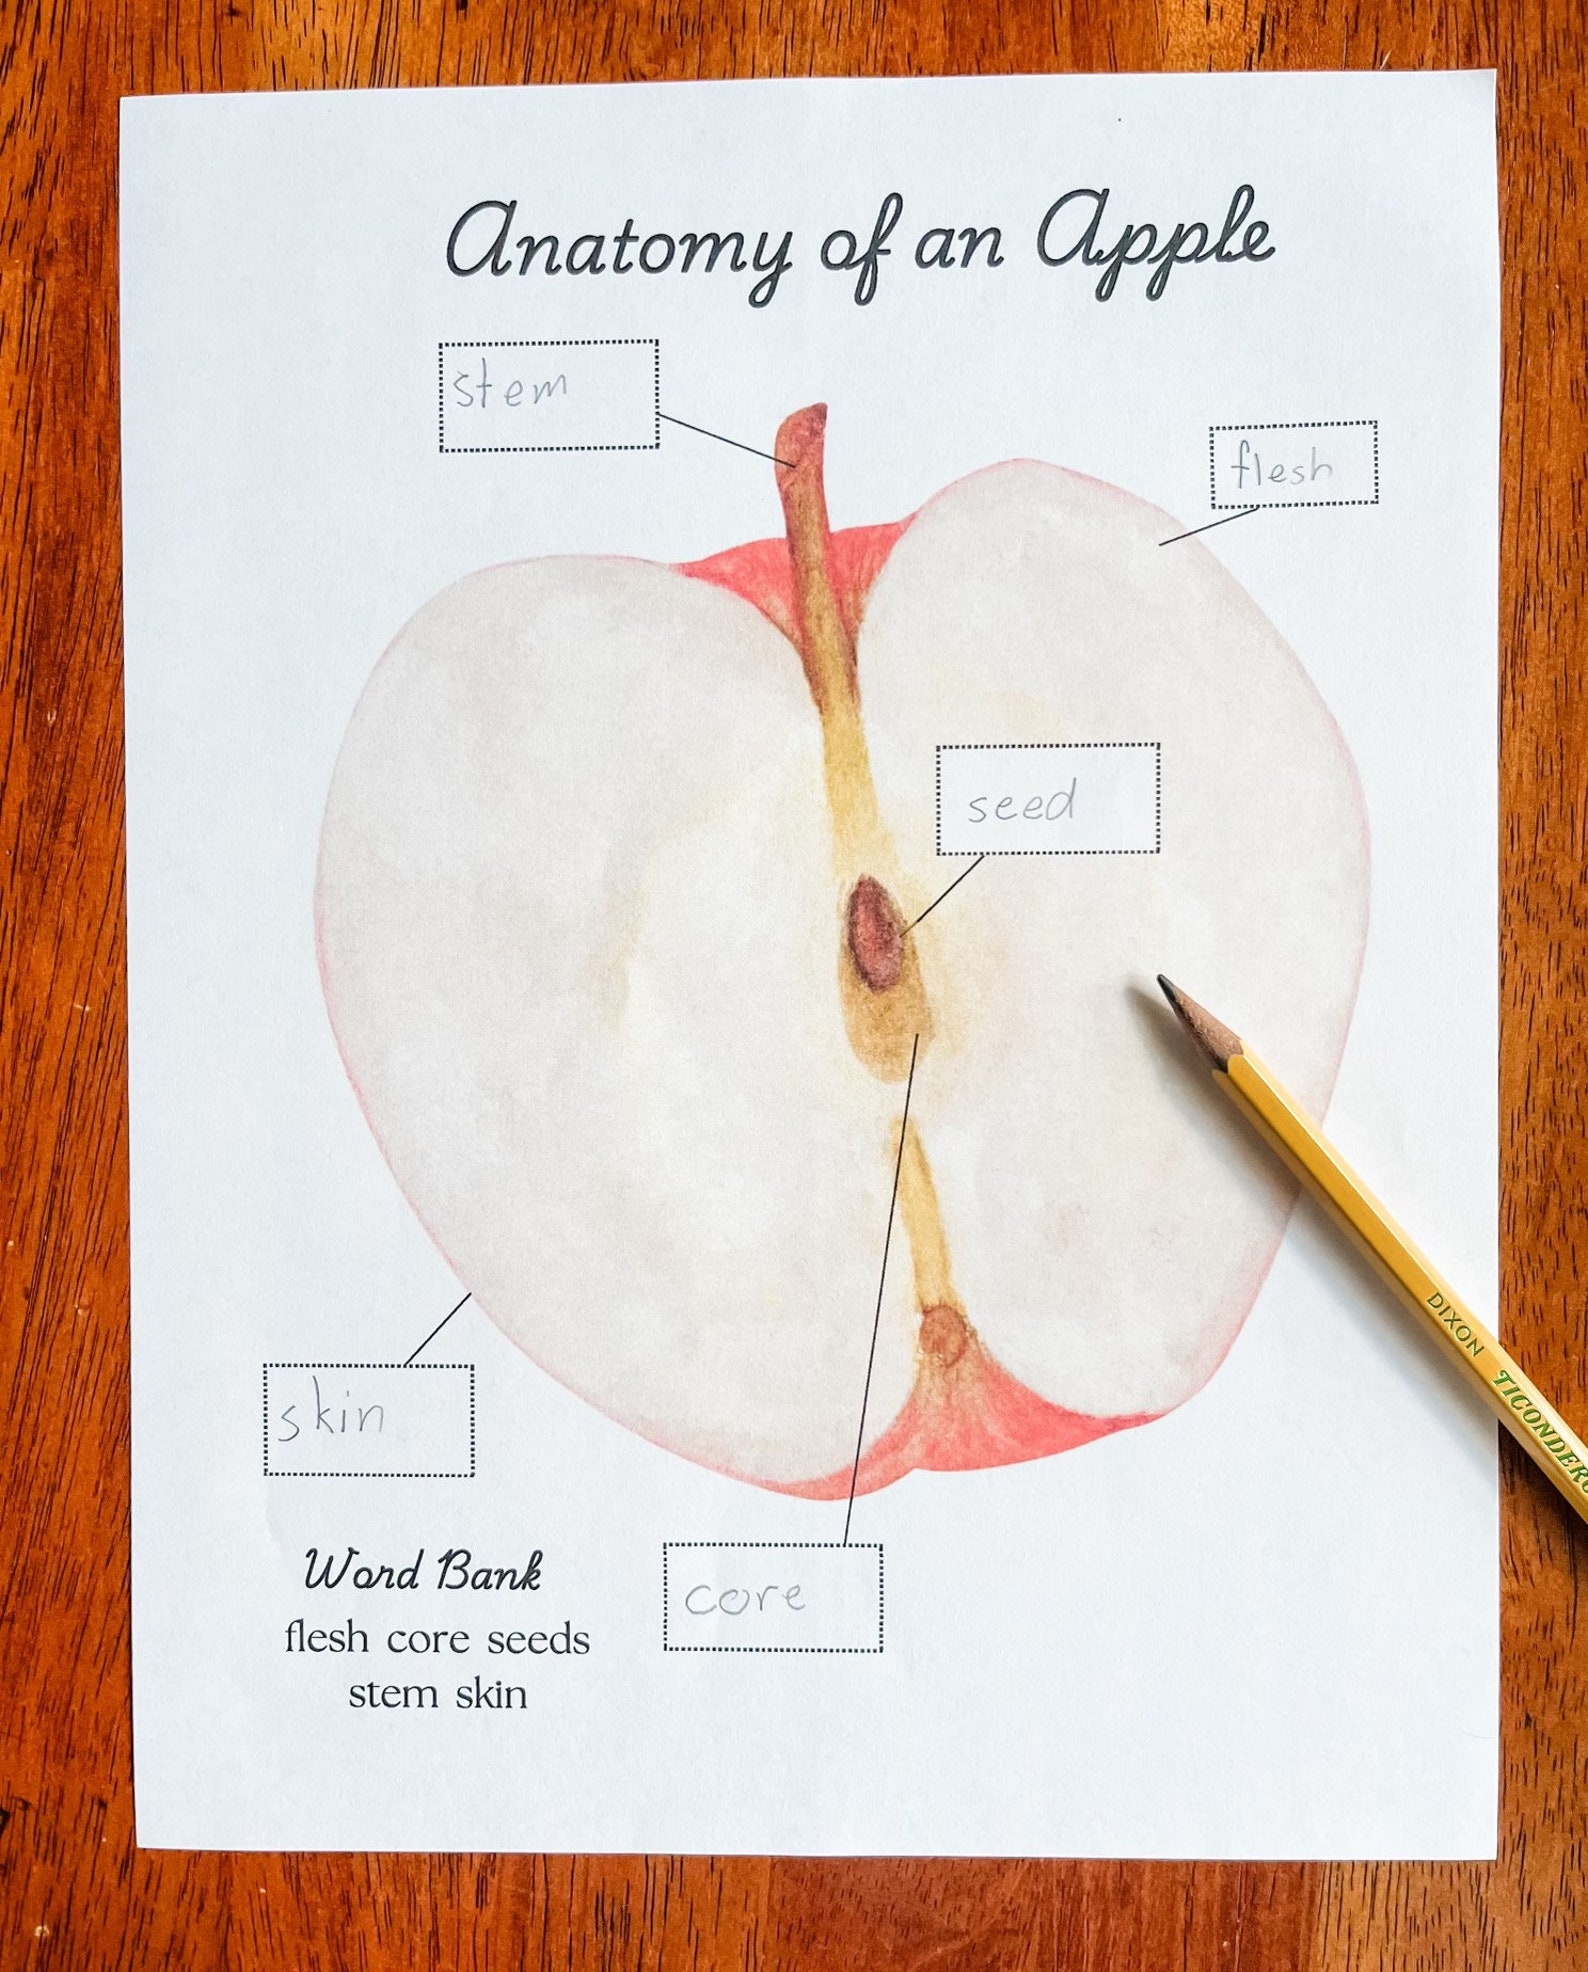 Anatomy of an Apple
stem
flesh
seed
skin
core
Word Bank
flesh core seeds
stem skin
DIXON